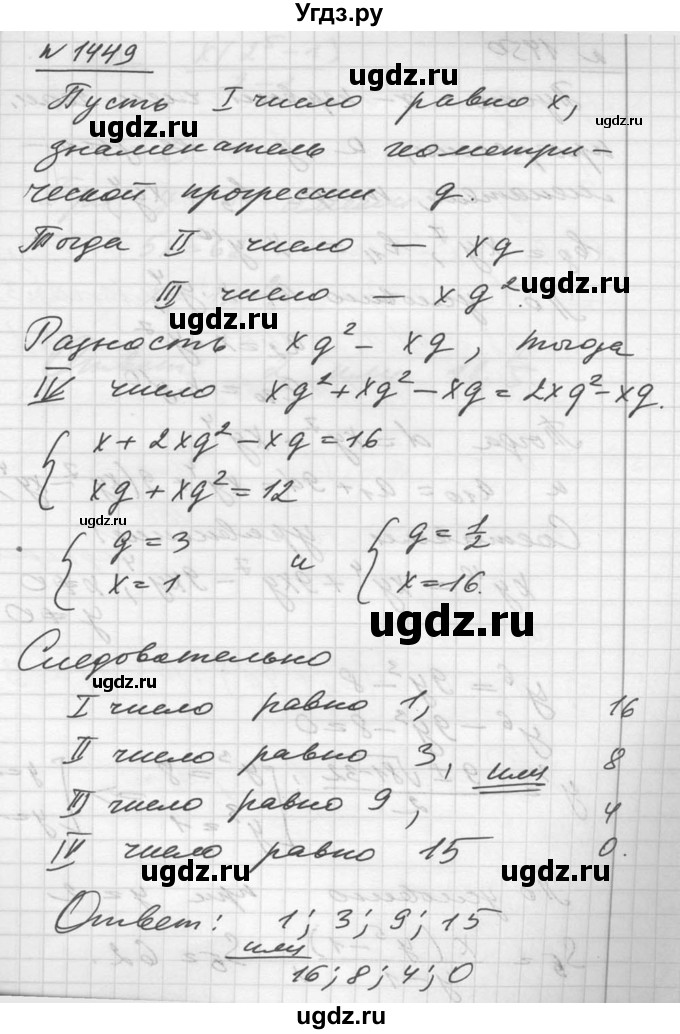 Угдз.ру
N 1449
ugdz.ru
Пусть I число равно x,
ugdz.ru ugdz.ru
знаменатель геометри-
ческой прогрессии q.
ugdz.ru
Тогда II число — xq
III число — xq². ugdz.ru
ugdz.ru
Разность xq² - xq, тогда
IV число xq² + xq² - xq = 2xq² - xq.
x + 2xq² - xq = 16
xq + xq² = 12
ugdz.ru
q = 3 и q = 1/2
x = 1 x = 16.
ugdz.ru
Следовательно
ugdz.ru
I число равно 1, 16
II число равно 3, или 8
III число равно 9, 4
IV число равно 15 0.
Ответ: 1; 3; 9; 15
или
16; 8; 4; 0
ugdz.ru